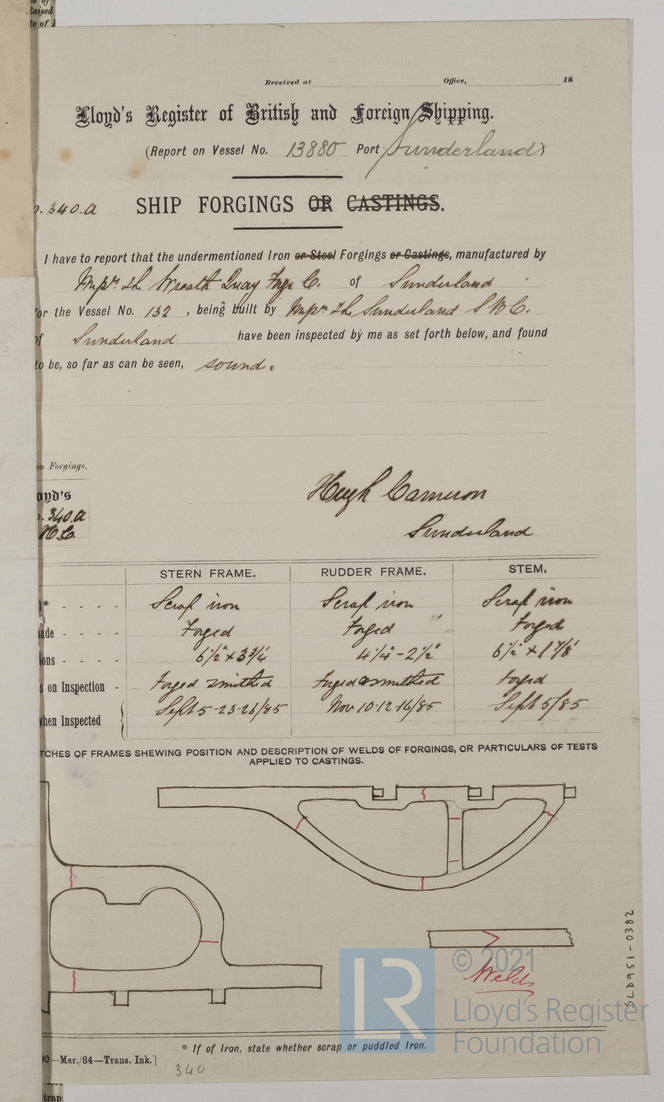 Raised
to of
Received at Office, 18
Lloyd's Register of British and Foreign Shipping.
(Report on Vessel No. 13880 Port Sunderland)
o. 340.A SHIP FORGINGS OR CASTINGS.
I have to report that the undermentioned Iron or Steel Forgings or Castings, manufactured by
Messrs. The Wreath Quay Forge Co. of Sunderland
or the Vessel No. 132, being built by Messrs. The Sunderland S.B.C.
of Sunderland have been inspected by me as set forth below, and found
to be, so far as can be seen, sound.
on Forgings.
oyd's
o. 340.A
H.C.
Hugh Cameron
Sunderland
STERN FRAME. RUDDER FRAME. STEM.
* - - - - Scrap iron Scrap iron Scrap iron
ade - - - - Forged Forged Forged
ons - - - - 6½" x 3¾" 4¼" - 2½" 6½" x 1⅞"
s on Inspection - Forged & smithed Forged & smithed Forged
hen Inspected Sept 5-23-28/85 Nov 10-12-16/85 Sept 5/85
TCHES OF FRAMES SHEWING POSITION AND DESCRIPTION OF WELDS OF FORGINGS, OR PARTICULARS OF TESTS
APPLIED TO CASTINGS.
Welds
SLD951-0382
© 2021
LR
Lloyd's Register
Foundation
* If of Iron, state whether scrap or puddled Iron.
00—Mar./84—Trans. Ink.]
340
trap